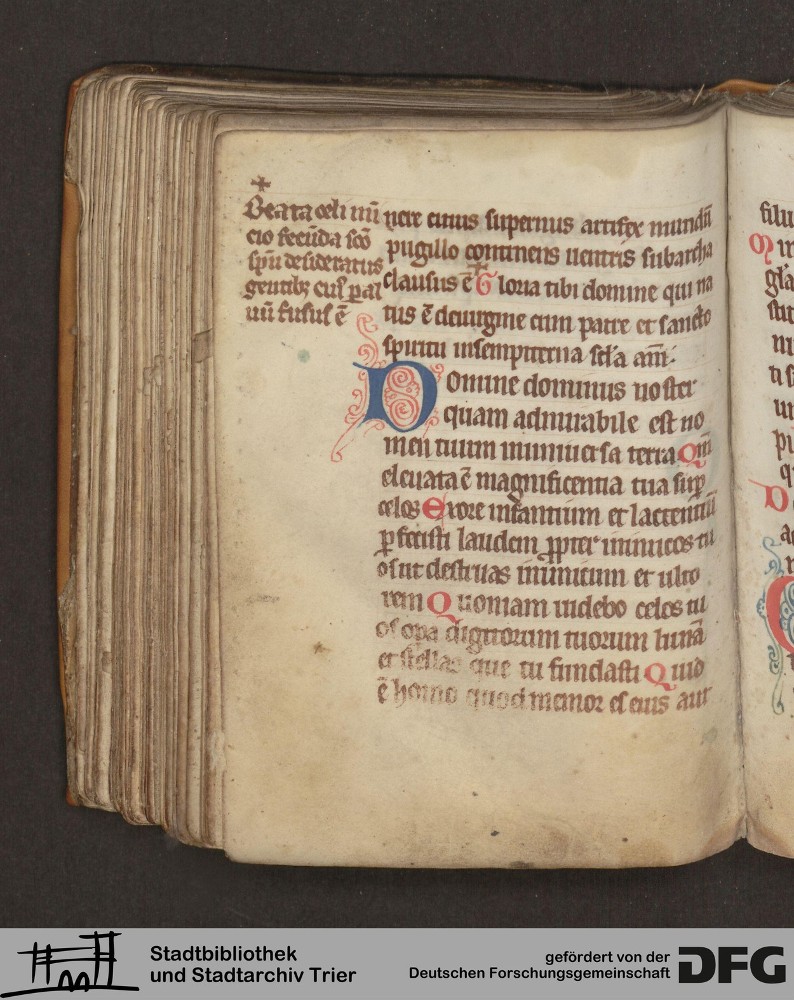 Beata celi nū
cio fecūda sc̄o
spū desideratus
gentibꝫ cuiꝰ ꝑ al
uū fusus ē
nere cuius supernus artifex mundū
pugillo continens uentris sub archa
clausus ē Gloria tibi domine qui na
tus ē deuirgine cum patre et sancto
spiritu insempiterna sc̄la am̄.
Domine dominus noster
quam admirabile est no
men tuum inuniuersa terra Qm̄
eleuata ē magnificentia tua suꝑ
celos Exore infantium et lactentiū
ꝑfecisti laudem ꝓpter inimicos tu
os ut destruas inimicum et ulto
rem Quoniam uidebo celos tu
os opa digitorum tuorum lunā
et stellas que tu fundasti Quid
ē homo quod memor es eius aut
filiu
gl̄a
Stadtbibliothek
und Stadtarchiv Trier
gefördert von der
Deutschen Forschungsgemeinschaft
DFG